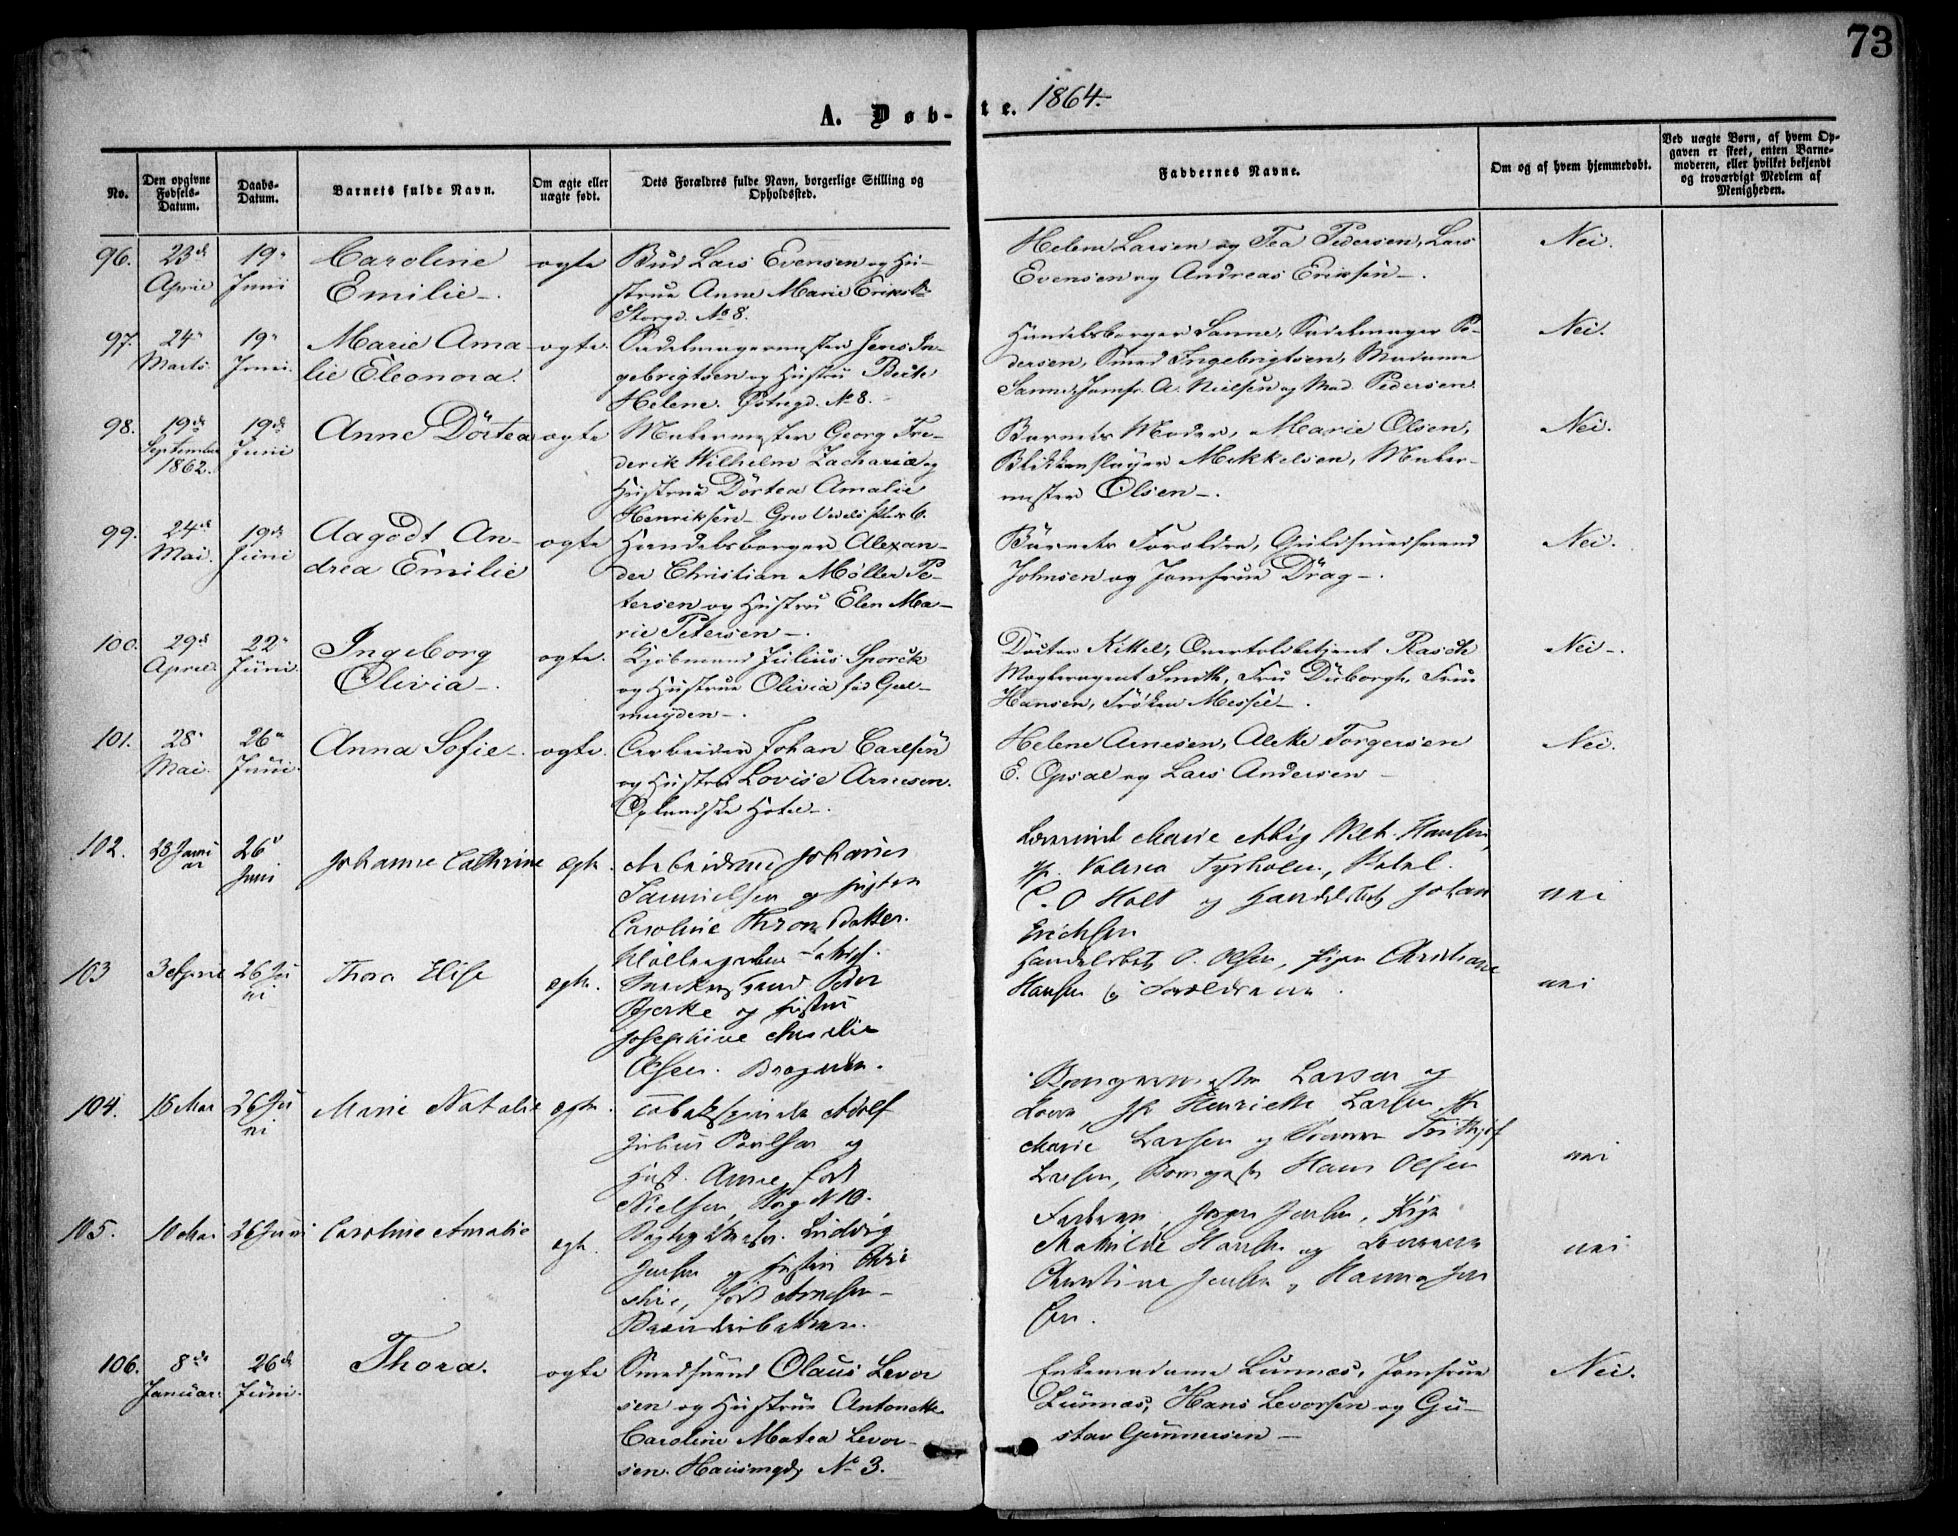 73
A. Døb-te. 1864.
No.
Den opgivne Fødsels-Datum.
Daabs-Datum.
Barnets fulde Navn.
Om ægte eller uægte født.
Dets Forældres fulde Navn, borgerlige Stilling og Opholdssted.
Faddernes Navne.
Om og af hvem hjemmedøbt.
Ved uægte Børn, af hvem Opgaven er skeet, enten Barnemoderen, eller hvilket bekjendt og troværdigt Medlem af Menigheden.
96. 23de April 19de Juni Caroline Emilie ægte
Bud Lars Evensen og Hu-
strue Anne Marie Eriks D.
Storgd. No 8.
Helene Larsen og Tea Pedersen, Lars
Evensen og Andreas Eriksen
Nei.
97. 24 Marts 19 Juni. Marie Ama-
lie Eleonora. ægte.
Sadelmagermester Jens In-
gebrigtsen og Hustru Berte
Helene. No 8.
Handelsborger Sanne, Sadelmager Pe-
dersen, Smed Ingebrigtsen, Madame
Sanne, Jomfr. A. Nielsen og Mad. Pedersen.
Nei.
98. 19de September 1862. 19de Juni Anne Dortea ægte
Malermester Georg Fre-
derik Wilhelm Zachariæ og
Hustrue Dortea Amalie
Henriksen
Barnets Moder, Marie Olsen,
Blikkenslager Mikkelsen, Maler-
mester Olsen.
Nei.
99. 24de Mai. 19de Juni Aagodt An-
drea Emilie ægte
Handelsborger Alexan-
der Christian Møller Pe-
tersen og Hustru Elen Ma-
rie Petersen.
Barnets Forældre, Guldsmedsvend
Johnsen og Jomfrue Drag.
Nei.
100. 29de April. 22 Juni. Ingeborg
Olivia. ægte.
Kjøbmand Julius Sporck
og Hustrue Olivia fød Gul-
muyden.
Dorter Kittel, Overtoldbetjent Rasch
Smith, Fru Duborgh, Frue
Hansen, Frøken
Nei.
101. 28 Mai. 26 Juni. Anna Sofie. ægte.
Arbeider Johan Carlsen
og Hustru Lovise Arnesen.
Oplandske Hotel.
Helene Arnesen, Aleke Torgersen
E. Opsal og Lars Andersen
Nei.
102. 23 Januar 26 Juni Johanne Cathrine ægte.
Arbeidsmd Johannes
Samuelsen og Hustru
Caroline Thron Datter.
Marie Hansen,
Valena Tyrholm,
C. O Holt og Handelsbet Johan
Erichsen
nei
103 3 April 26 Juni Thora Elise ægte.
Snedkersvend Peder
Bjerke og Hustru
Josephine Amalie
Olsen.
Handelsbet O. Olsen, Pigen Christiane
Hansen og Forældrene.
nei
104. 15 Mai 26 Juni Marie Natalie ægte.
Tobakspinder Adolf
Julius Poulsen og
Hust. Anne, født
Nielsen, No 10.
Larsen og
Kone, Jfr Henriette Larsen, Jfr
Marie Larsen og Frithjof
Larsen, Hans Olsen
nei
105. 10 Mai 26 Juni Caroline Amalie ægte.
Ludvig
Jensen og Hustru Chri-
stine, født Arnesen
Faderen, Jørgen Jensen, Pige
Mathilde Hansen og
Christine Jensen, Hanna Jen
sen.
nei
106. 8de Januar. 26de Juni. Thora. ægte
Smedsvend Olaus Levor
sen og Hustrue Antonette
Caroline Matea Levor-
sen. Hausmgd. No 3.
Enkemadame Lunnas, Jomfrue
Lunnas, Hans Levorsen og Gu-
stav Gunnersen
Nei.